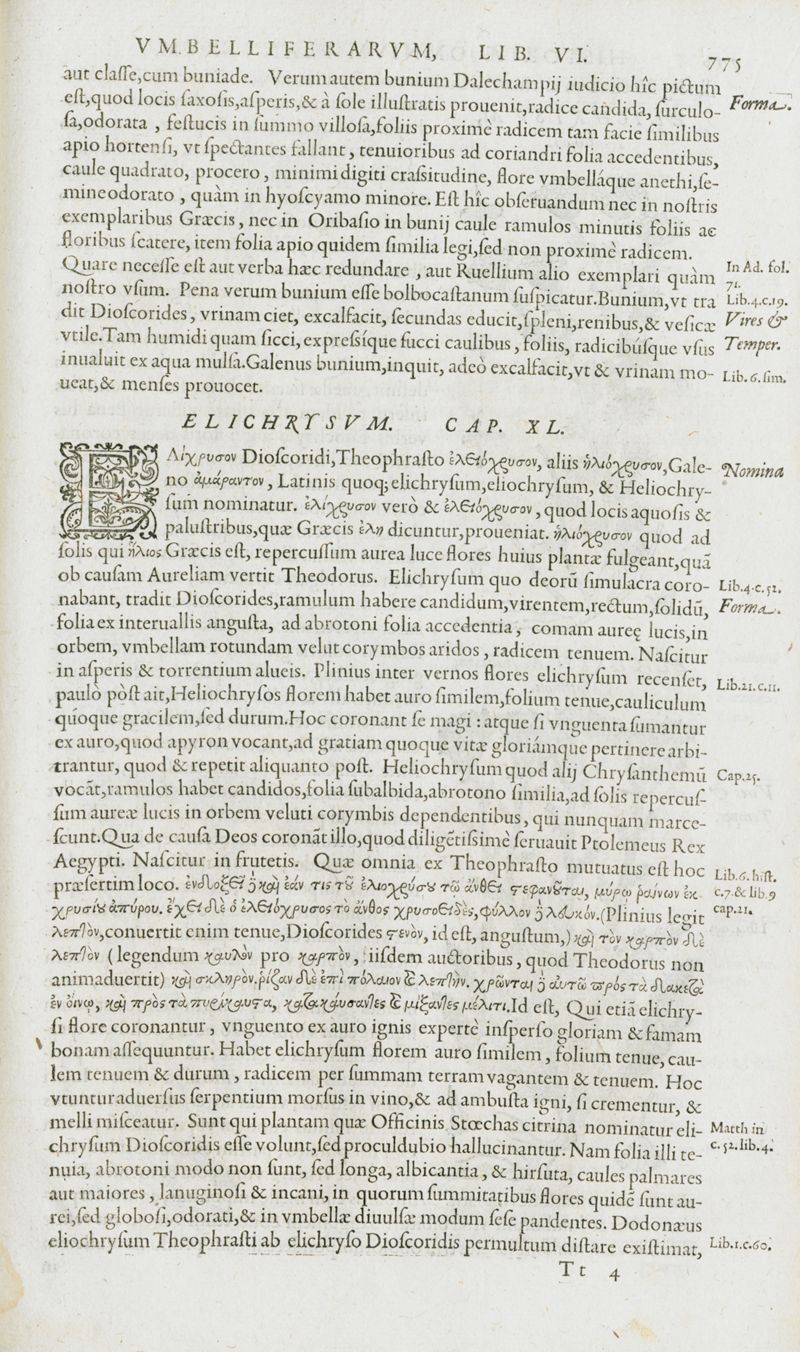 VMBELLIFERARVM, LIB. VI. 775
aut claſſe,cum buniade. Verum autem bunium Dalechampij iudicio hîc pictum
eſt,quod locis ſaxoſis,aſperis,& à ſole illuſtratis prouenit,radice candida, ſurculo-
Forma.
ſa,odorata , feſtucis in ſummo villoſa,foliis proximè radicem tam facie ſimilibus
apio hortenſi, vt ſpectantes fallant, tenuioribus ad coriandri folia accedentibus,
caule quadrato, procero , minimi digiti craſsitudine, flore vmbelláque anethi,ſe-
mine odorato , quàm in hyoſcyamo minore. Eſt hîc obſeruandum nec in noſtris
exemplaribus Græcis , nec in Oribaſio in bunij caule ramulos minutis foliis ac
floribus ſcatere, item folia apio quidem ſimilia legi,ſed non proximè radicem.
Quare neceſſe eſt aut verba hæc redundare , aut Ruellium alio exemplari quàm
In Ad. fol. 71.
noſtro vſum. Pena verum bunium eſſe bolbocaſtanum ſuſpicatur.Bunium,vt tra
Lib.4.c.19.
dit Dioſcorides, vrinam ciet, excalfacit, ſecundas educit,ſpleni,renibus,& veſicæ
Vires &
vtile.Tam humidi quam ſicci, expreſsíque ſucci caulibus , foliis, radicibúſque vſus
Temper.
inualuit ex aqua mulſa.Galenus bunium,inquit, adeò excalfacit,vt & vrinam mo-
Lib.6.ſim.
ueat,& menſes prouocet.
ELICHRYSVM. CAP. XL.
ΕΛίχρυσον Dioſcoridi,Theophraſto ἑλειόχρυσον, aliis ἡλιόχρυσον,Gale-
Nomina
no ἀμάραντον , Latinis quoq; elichryſum,eliochryſum, & Heliochry-
ſum nominatur. ἑλίχρυσον verò & ἑλειόχρυσον , quod locis aquoſis &
paluſtribus,quæ Græcis ἕλη dicuntur,proueniat. ἡλιόχρυσον quod ad
ſolis qui ἥλιος Græcis eſt, repercuſſum aurea luce flores huius plantæ fulgeant,quā
ob cauſam Aureliam vertit Theodorus. Elichryſum quo deorū ſimulacra coro-
Lib.4.c.52.
nabant, tradit Dioſcorides,ramulum habere candidum,virentem,rectum,ſolidū,
Forma.
folia ex interuallis anguſta, ad abrotoni folia accedentia, comam aureę lucis,in
orbem, vmbellam rotundam velut corymbos aridos , radicem tenuem. Naſcitur
in aſperis & torrentium alueis. Plinius inter vernos flores elichryſum recenſet,
Lib.21.c.11.
paulò pòſt ait,Heliochryſos florem habet auro ſimilem,folium tenue,cauliculum
quoque gracilem,ſed durum.Hoc coronant ſe magi : atque ſi vnguenta ſumantur
ex auro,quod apyron vocant,ad gratiam quoque vitæ gloriámque pertinere arbi-
trantur, quod & repetit aliquanto poſt. Heliochryſum quod alij Chryſanthemū
Cap.25.
vocāt,ramulos habet candidos,folia ſubalbida,abrotono ſimilia,ad ſolis repercuſ-
ſum aureæ lucis in orbem veluti corymbis dependentibus, qui nunquam marce-
ſcunt.Qua de cauſa Deos coronāt illo,quod diligētiſsimè ſeruauit Ptolemeus Rex
Aegypti. Naſcitur in frutetis. Quæ omnia ex Theophraſto mutuatus eſt hoc
Lib.6.hiſt.
præſertim loco. ἐνδοξει δὲ καὶ ἐάν τις τοῦ ἑλιοχρύσου τῷ ἄνθει στεφανοῦται, μύρῳ ῥαίνων ἐκ
c.7.& lib.9
χρυσίου ἀπύρου. ἔχει δὲ ὁ ἑλειόχρυσος τὸ ἄνθος χρυσοειδὲς,φύλλον δὲ λευκόν.(Plinius legit
cap.21.
λεπτὸν,conuertit enim tenue,Dioſcorides στενὸν, id eſt, anguſtum,) καὶ τὸν καρπὸν δὲ
λεπτὸν (legendum καυλὸν pro καρπὸν, iiſdem auctoribus, quod Theodorus non
animaduertit) καὶ σκληρὸν.ῥίζαν δὲ ἐπιπόλαιον καὶ λεπτήν. χρῶνται δὲ αὐτῷ πρὸς τὰ δακετὰ
ἐν οἴνῳ, καὶ πρὸς τὰ πυρίκαυστα, κατακαύσαντες καὶ μίξαντες μέλιτι.Id eſt, Qui etiā elichry-
ſi flore coronantur , vnguento ex auro ignis expertè inſperſo gloriam & famam
bonam aſſequuntur. Habet elichryſum florem auro ſimilem , folium tenue, cau-
lem tenuem & durum , radicem per ſummam terram vagantem & tenuem. Hoc
vtuntur aduerſus ſerpentium morſus in vino,& ad ambuſta igni, ſi crementur, &
melli miſceatur. Sunt qui plantam quæ Officinis Stœchas citrina nominatur eli-
Matth in
chryſum Dioſcoridis eſſe volunt,ſed proculdubio hallucinantur. Nam folia illi te-
c.52.lib.4.
nuia, abrotoni modo non ſunt, ſed longa, albicantia , & hirſuta, caules palmares
aut maiores , lanuginoſi & incani, in quorum ſummitatibus flores quidē ſunt au-
rei,ſed globoſi,odorati,& in vmbellæ diuulſæ modum ſeſe pandentes. Dodonæus
eliochryſum Theophraſti ab elichryſo Dioſcoridis permultum diſtare exiſtimat,
Lib.1.c.60.
Tt 4